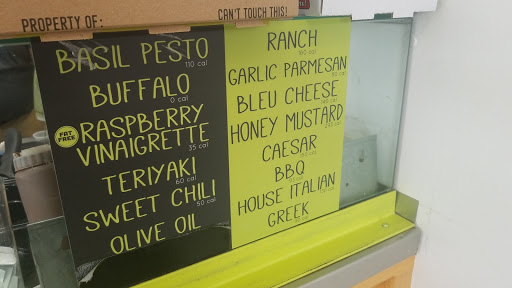 PROPERTY OF:
CAN'T TOUCH THIS!
BASIL PESTO
110 cal
BUFFALO
0 cal
FAT FREE
RASPBERRY
VINAIGRETTE
35 cal
TERIYAKI
60 cal
SWEET CHILI
50 cal
OLIVE OIL
RANCH
160 cal
GARLIC PARMESAN
BLEU CHEESE
HONEY MUSTARD
CAESAR
BBQ
HOUSE ITALIAN
GREEK